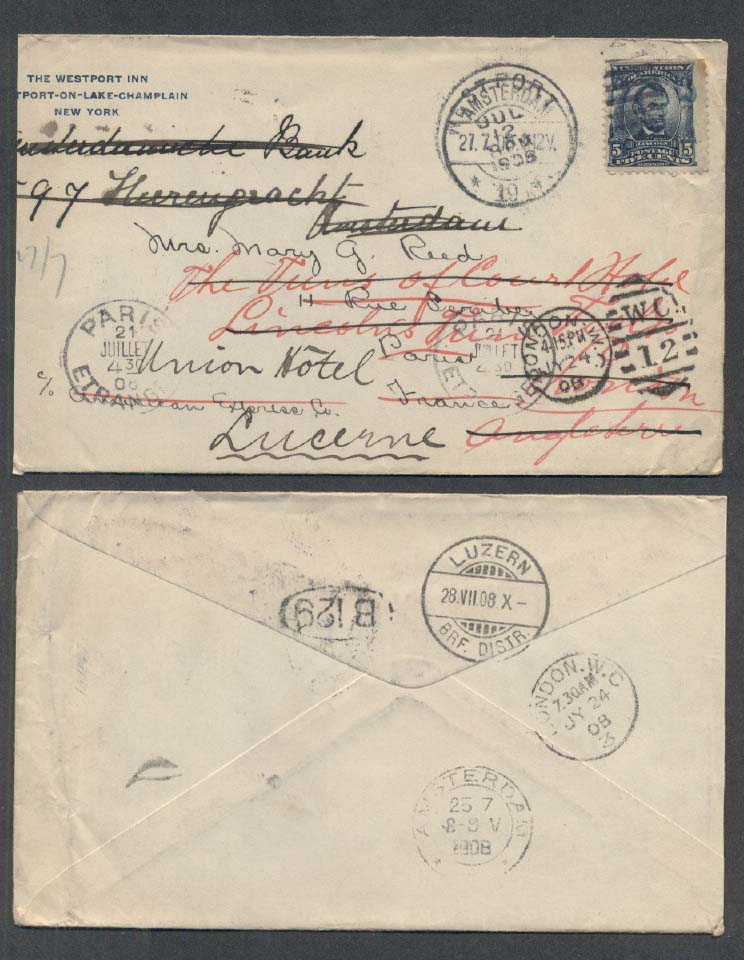 THE WESTPORT INN
TPORT-ON-LAKE-CHAMPLAIN
NEW YORK
Amsterdamsche Bank
597 Heerengracht
Amsterdam
WESTPORT
JUL
12
1908
AMSTERDAM
27.7 12V.
* 19 *
UNITED STATES
OF AMERICA
LINCOLN
5 POSTAGE 5
FIVE CENTS
Mrs. Mary G. Reed
The Inns of Court Hotel
11 Rue Scribe
Lincoln's Inn
Union Hôtel
Paris
London
c/o American Express Co.
France
Lucerne
Angleterre
27/7
PARIS
21
JUILLET
4 30
08
ETRANGER
21
JUILLET
4 30
ETRANGER
LONDON. W.C
4.15.PM
JY 24
08
W.C
12
B 129
LUZERN
28.VII.08 X-
BRF. DISTR.
LONDON. W.C
7.30AM
JY 24
08
AMSTERDAM
25 7
8-9 V
1908